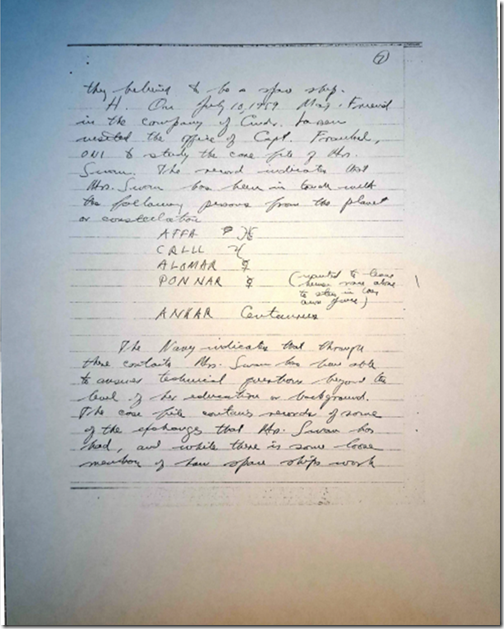 (7)
they believed to be a space ship.
H. On July 10, 1959 Maj. Friend
in the company of Cmdr. Larsen
visited the office of Capt.
ONI to study the case file of Mrs.
Swan. The record indicates that
Mrs. Swan has been in touch with
the following persons from the planet
or constellation
AFFA
CRLL
ALOMAR ☿
PONNAR ☿
(reported to have
to stay in
ANKAR Centaurus
The Navy indicates that through
these contacts Mrs. Swan has been able
to answer technical questions beyond the
level of her education or background.
The case file contains records of some
of the exchanges that Mrs. Swan has
had, and while there is some loose
mention of how space ships work